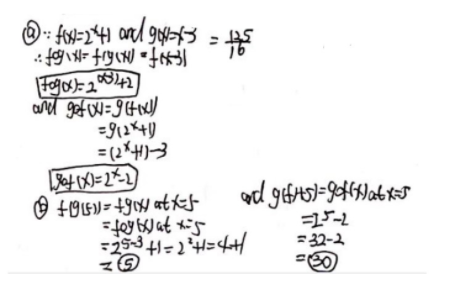 ⓐ ∵ f(x)=2^x+1 and g(x)=x-3 = 125/16
∴ fog(x)= f(g(x)) = f(x-3)
fog(x)= 2^(x-3)+2
and gof(x)=g(f(x))
=g(2^x+1)
=(2^x+1)-3
gof(x)=2^x-2
ⓑ f(g(5))=fg(x) at x=5
=fog(x) at x=5
=2^5-3+1=2^2+1=4+1
=5
and g(f(5)=gof(x) at x=5
=2^5-2
=32-2
=30